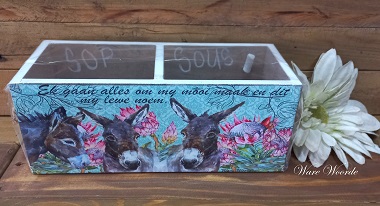 SOP SOUS
Ek gaan alles om my mooi maak en dit
my lewe noem.
Ware Woorde